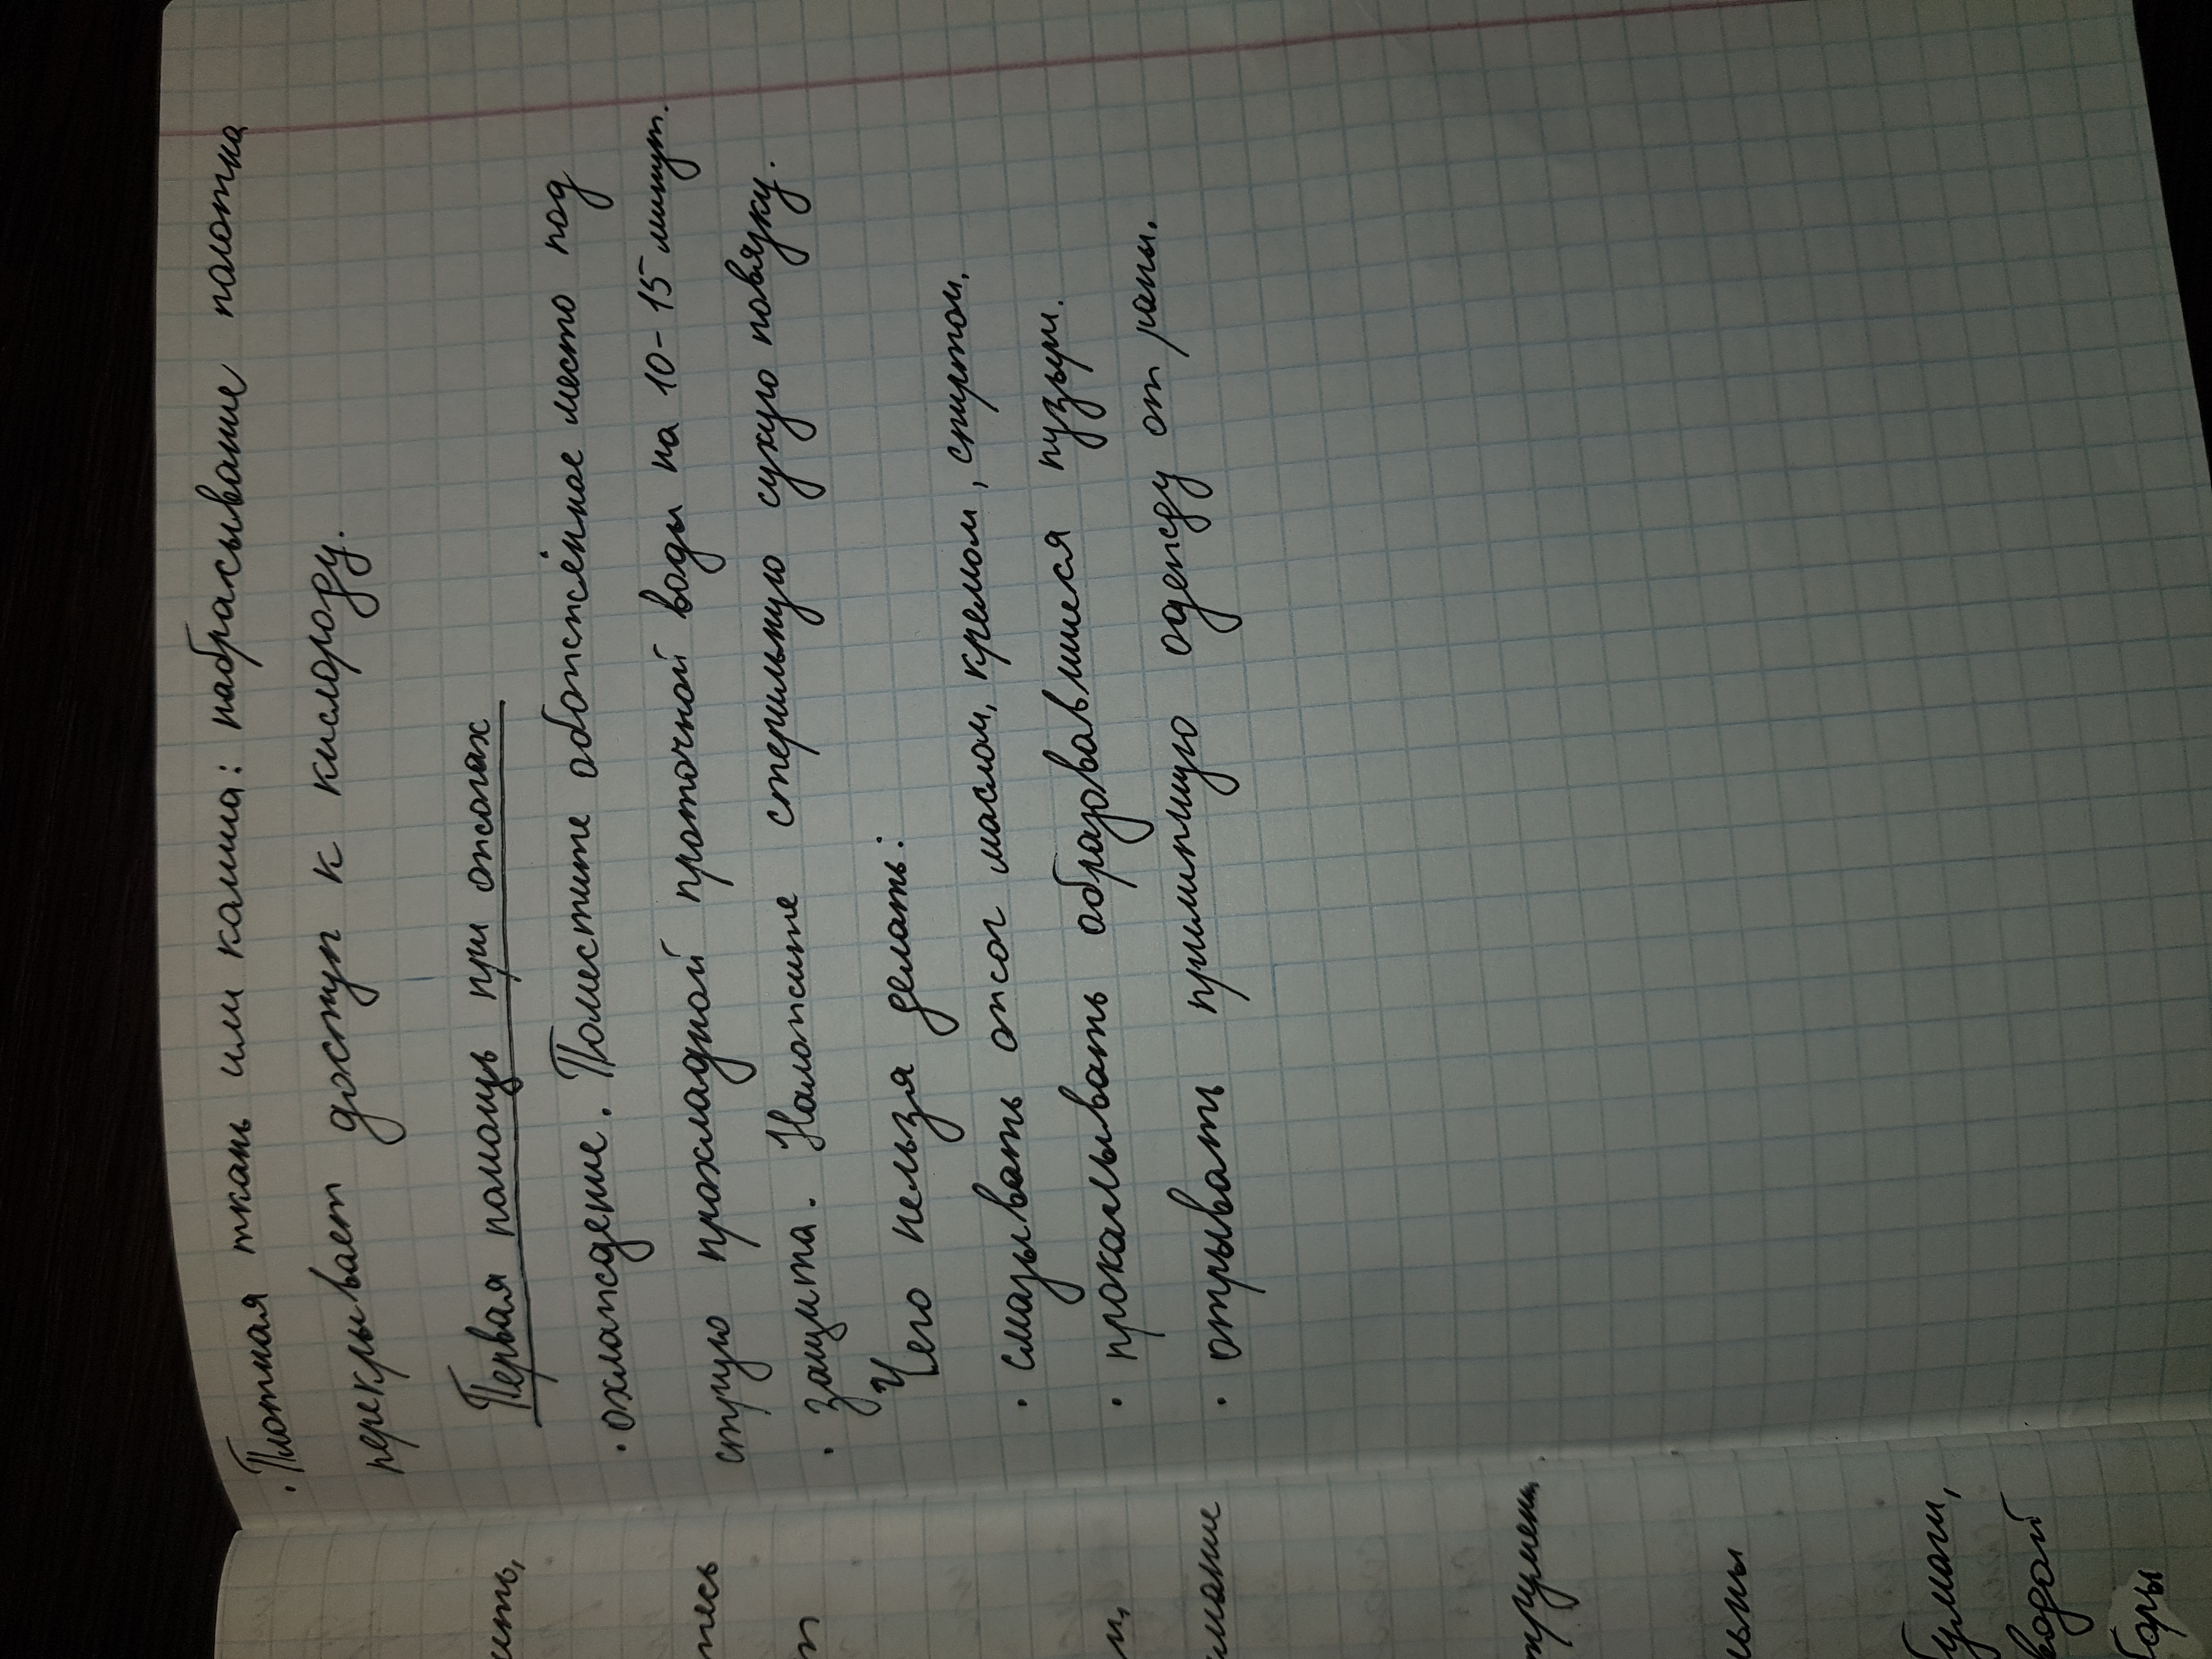 · Плотная ткань или кошма: набрасывание полотна
перекрывает доступ к кислороду.
Первая помощь при ожогах
· охлаждение. Поместите обожжённое место под
струю прохладной проточной воды на 10-15 минут.
· защита. Наложите стерильную сухую повязку.
Чего нельзя делать:
· смазывать ожог маслом, кремом, спиртом.
· прокалывать образовавшиеся пузыри.
· отрывать прилипшую одежду от раны.
бумаги,
водой